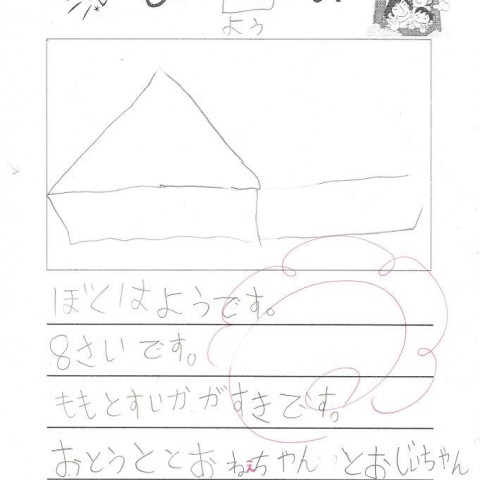 よう
ぼくはようです。
8さいです。
ももとすいかがすきです。
おとうととおねぇちゃん とおじいちゃん